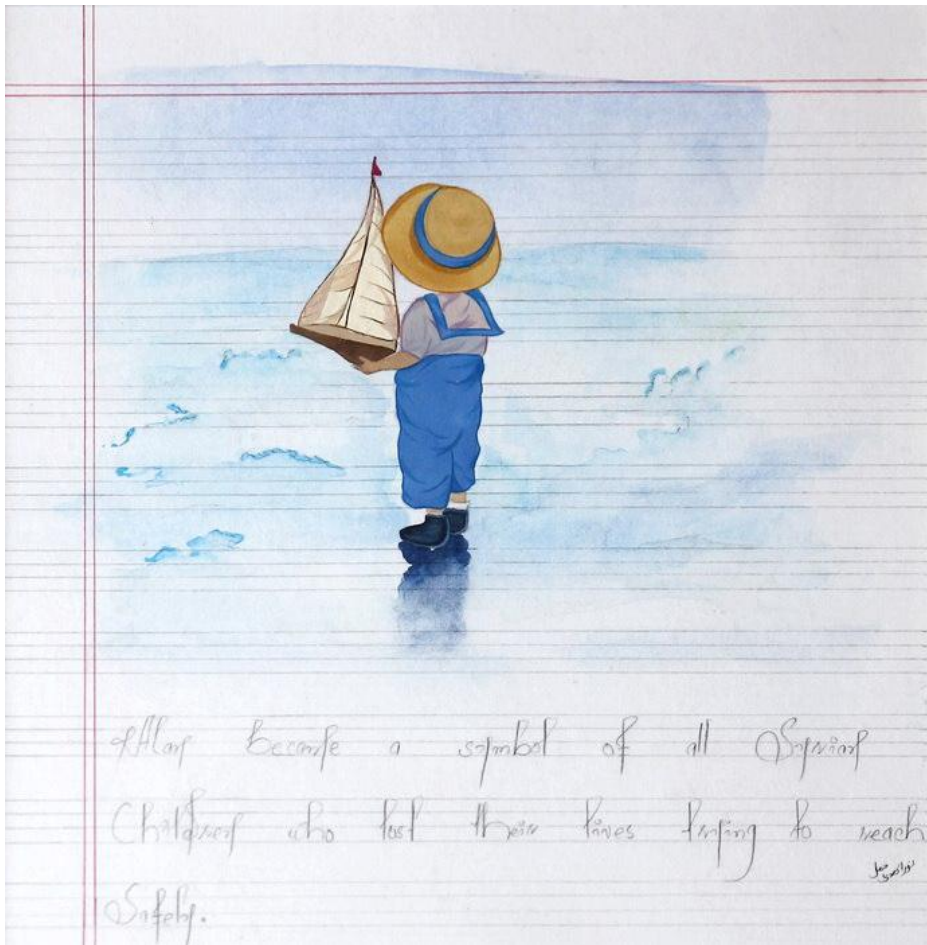 Alan became a symbol of all Syrian
Children who lost their lives trying to reach
Safety.